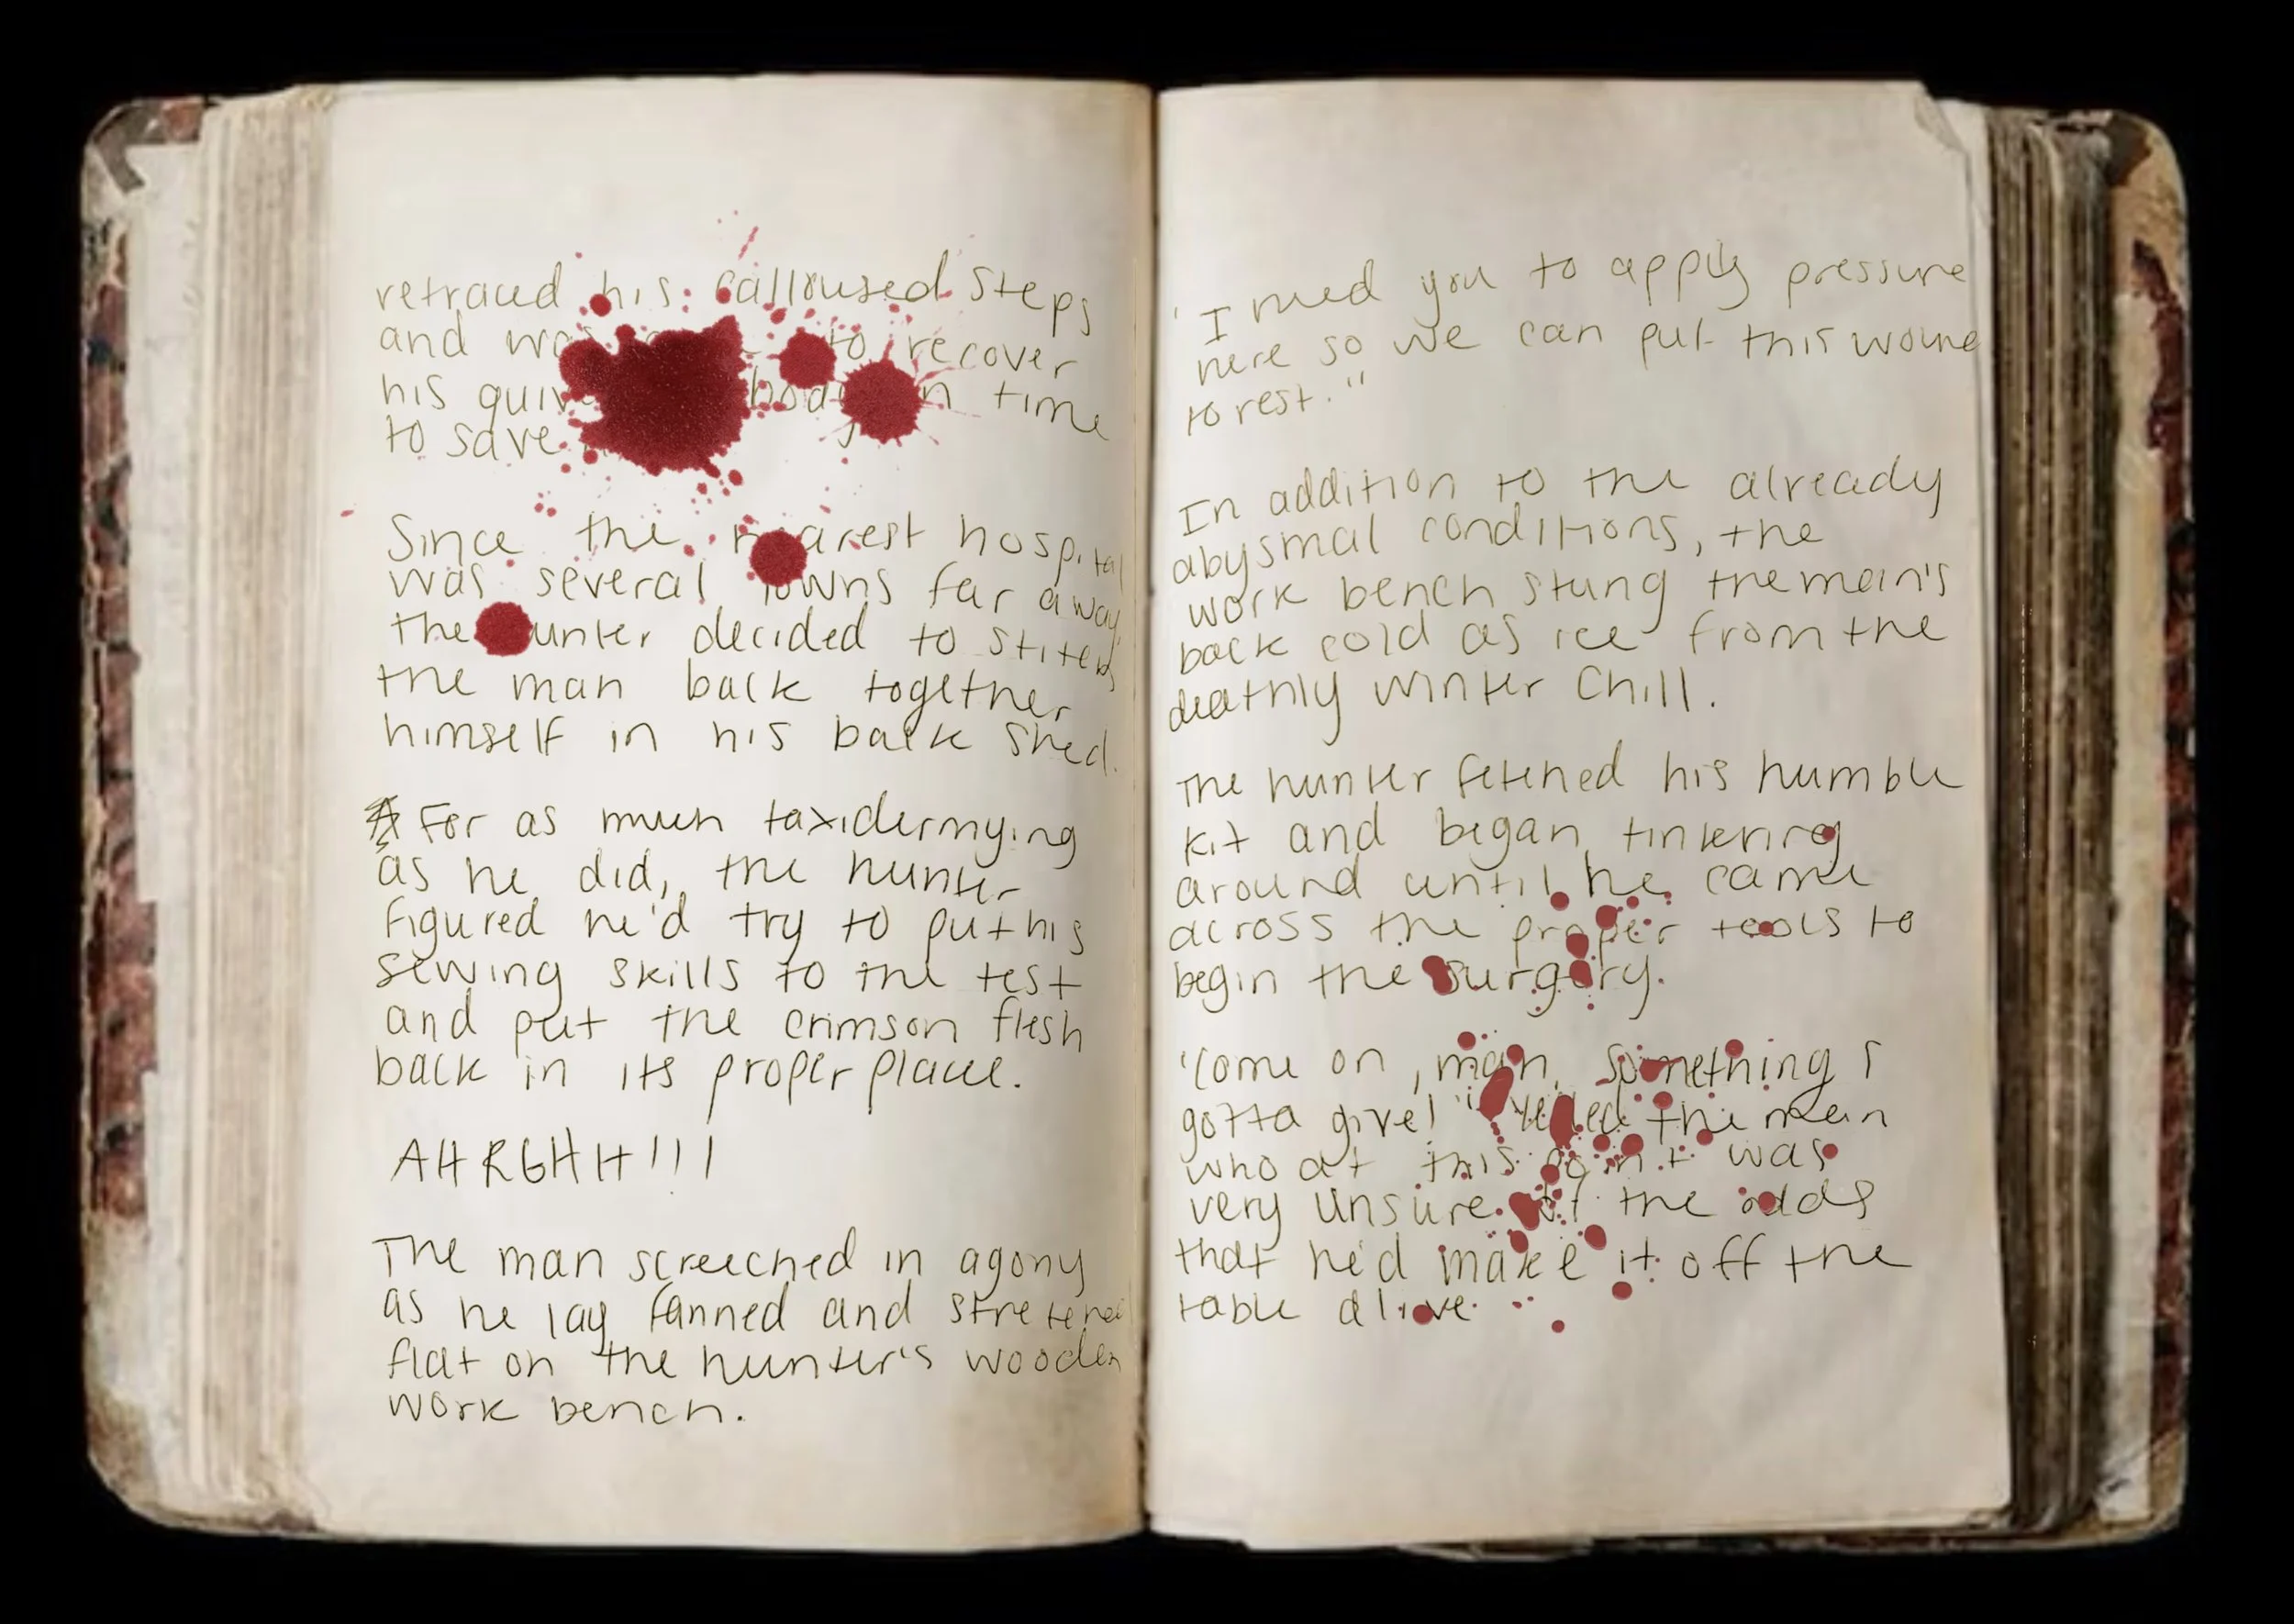 retraced his calloused steps
and was to recover
his body in time
to save
Since the nearest hospital
was several towns far away,
the hunter decided to stitch
the man back together
himself in his back shed.
For as much taxidermying
as he did, the hunter
figured he'd try to put his
sewing skills to the test
and put the crimson flesh
back in its proper place.
AHRGHH!!!
The man screeched in agony
as he lay fanned and stretched
flat on the hunter's wooden
work bench.
"I need you to apply pressure
here so we can put this wound
to rest."
In addition to the already
abysmal conditions, the
work bench stung the man's
back cold as ice from the
deathly winter chill.
The hunter fetched his humble
kit and began tinkering
around until he came
across the proper tools to
begin the surgery.
'Come on, man, something's
gotta give!' yelled the man
who at this point was
very unsure of the odds
that he'd make it off the
table alive.